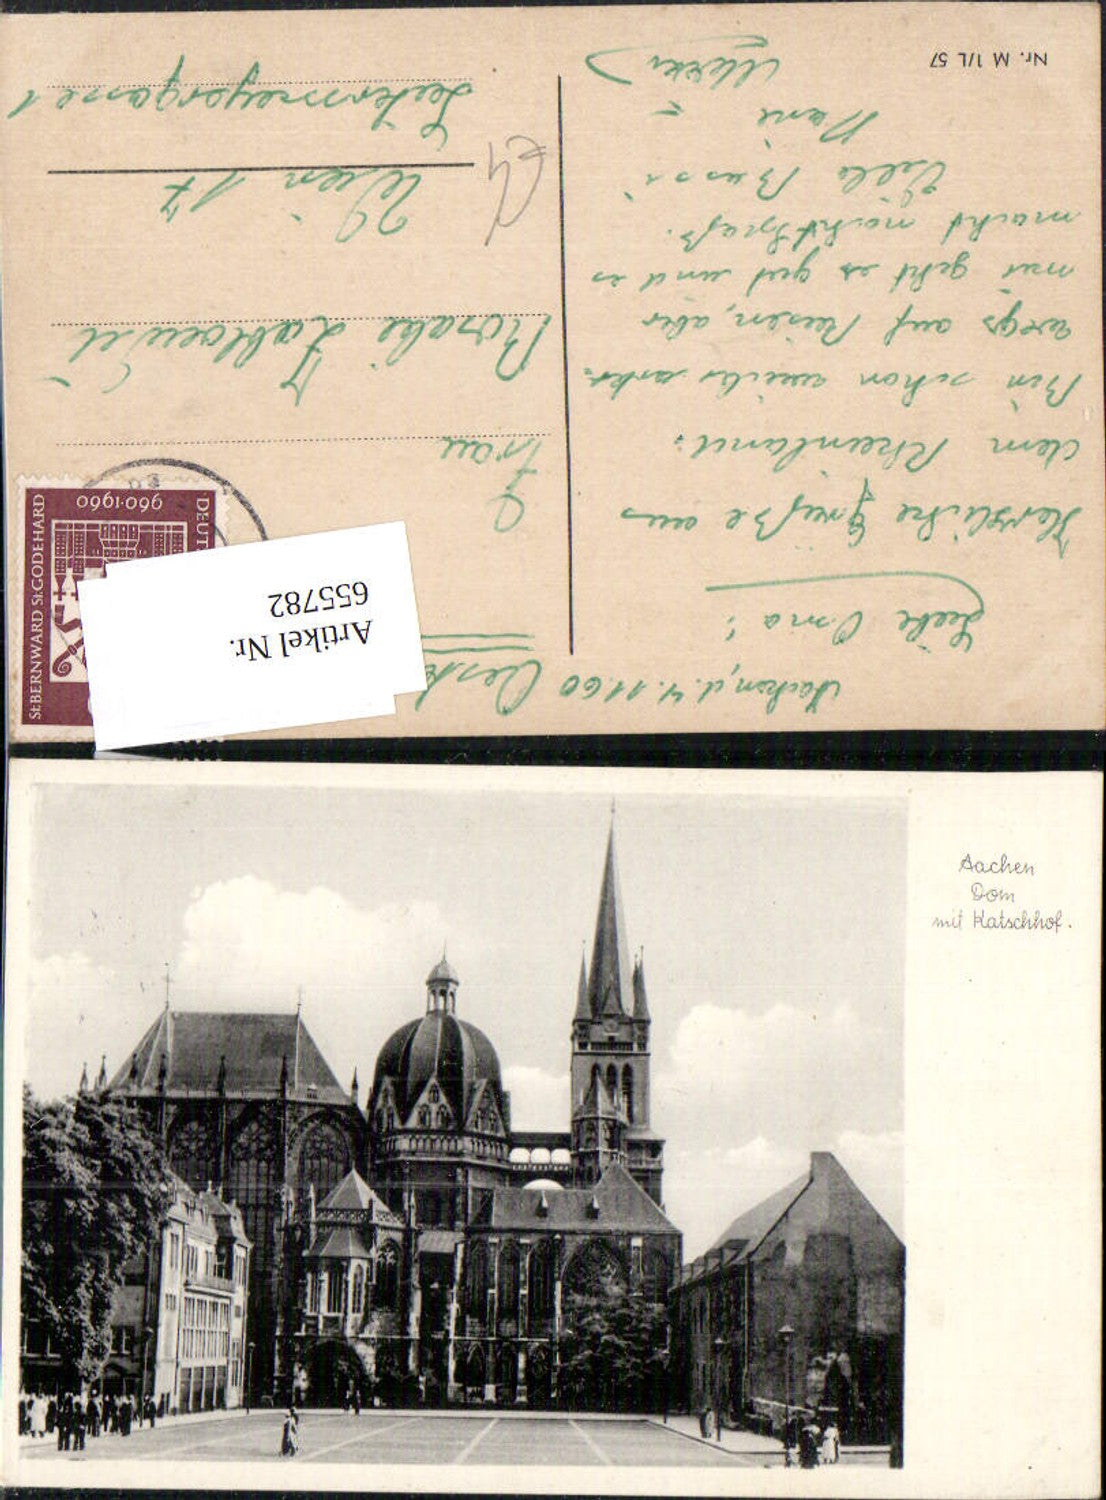 Aachen, d. 4.11.60
Liebe Oma!
Herzliche Grüße aus
dem Rheinland.
Bin schon weiter
wegs auf Reisen, aber
mir geht es gut und es
macht mächt Spaß.
Viele Bussi
Nr. M 1/L 57
Frau
Rosalie
Wien 17
Leitermayergasse 1
DEUT
960·1960
ST.BERNWARD ST.GODEHARD
Artikel Nr.
655782
Aachen
Dom
mit Katschhof.